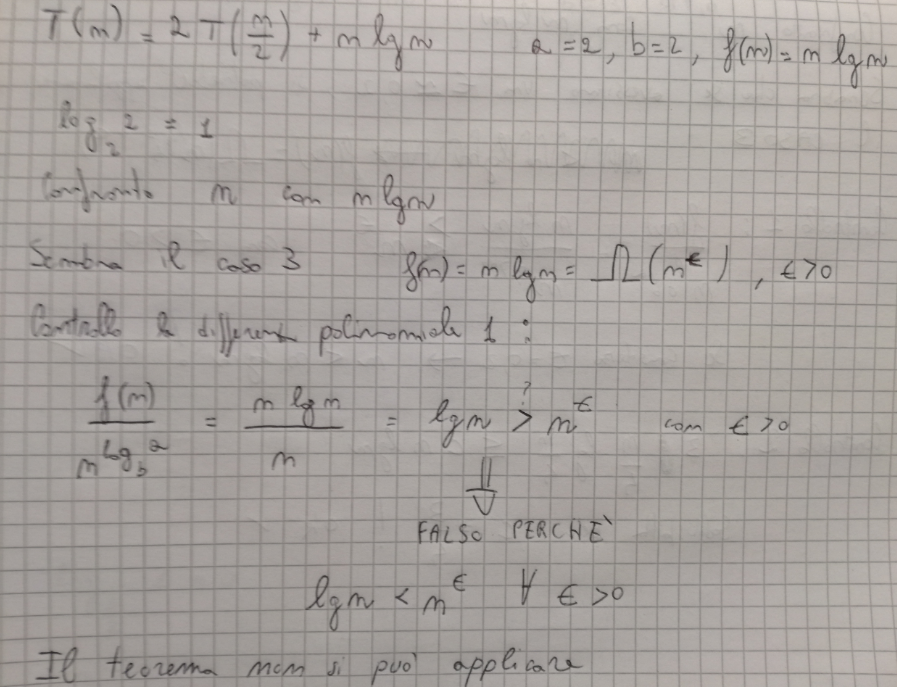 T(n) = 2 T(n/2) + n lg n a = 2, b = 2, f(n) = n lg n
log_2 2 = 1
Confronto n con n lg n
Sembra il caso 3 f(n) = n lg n = Ω(n^ε), ε > 0
Controllo la differenza polinomiale 1 :
f(n) / n^(log_b a) = n lg n / n = lg n >? n^ε con ε > 0
⇓
FALSO PERCHÈ
lg n < n^ε ∀ ε > 0
Il teorema non si può applicare